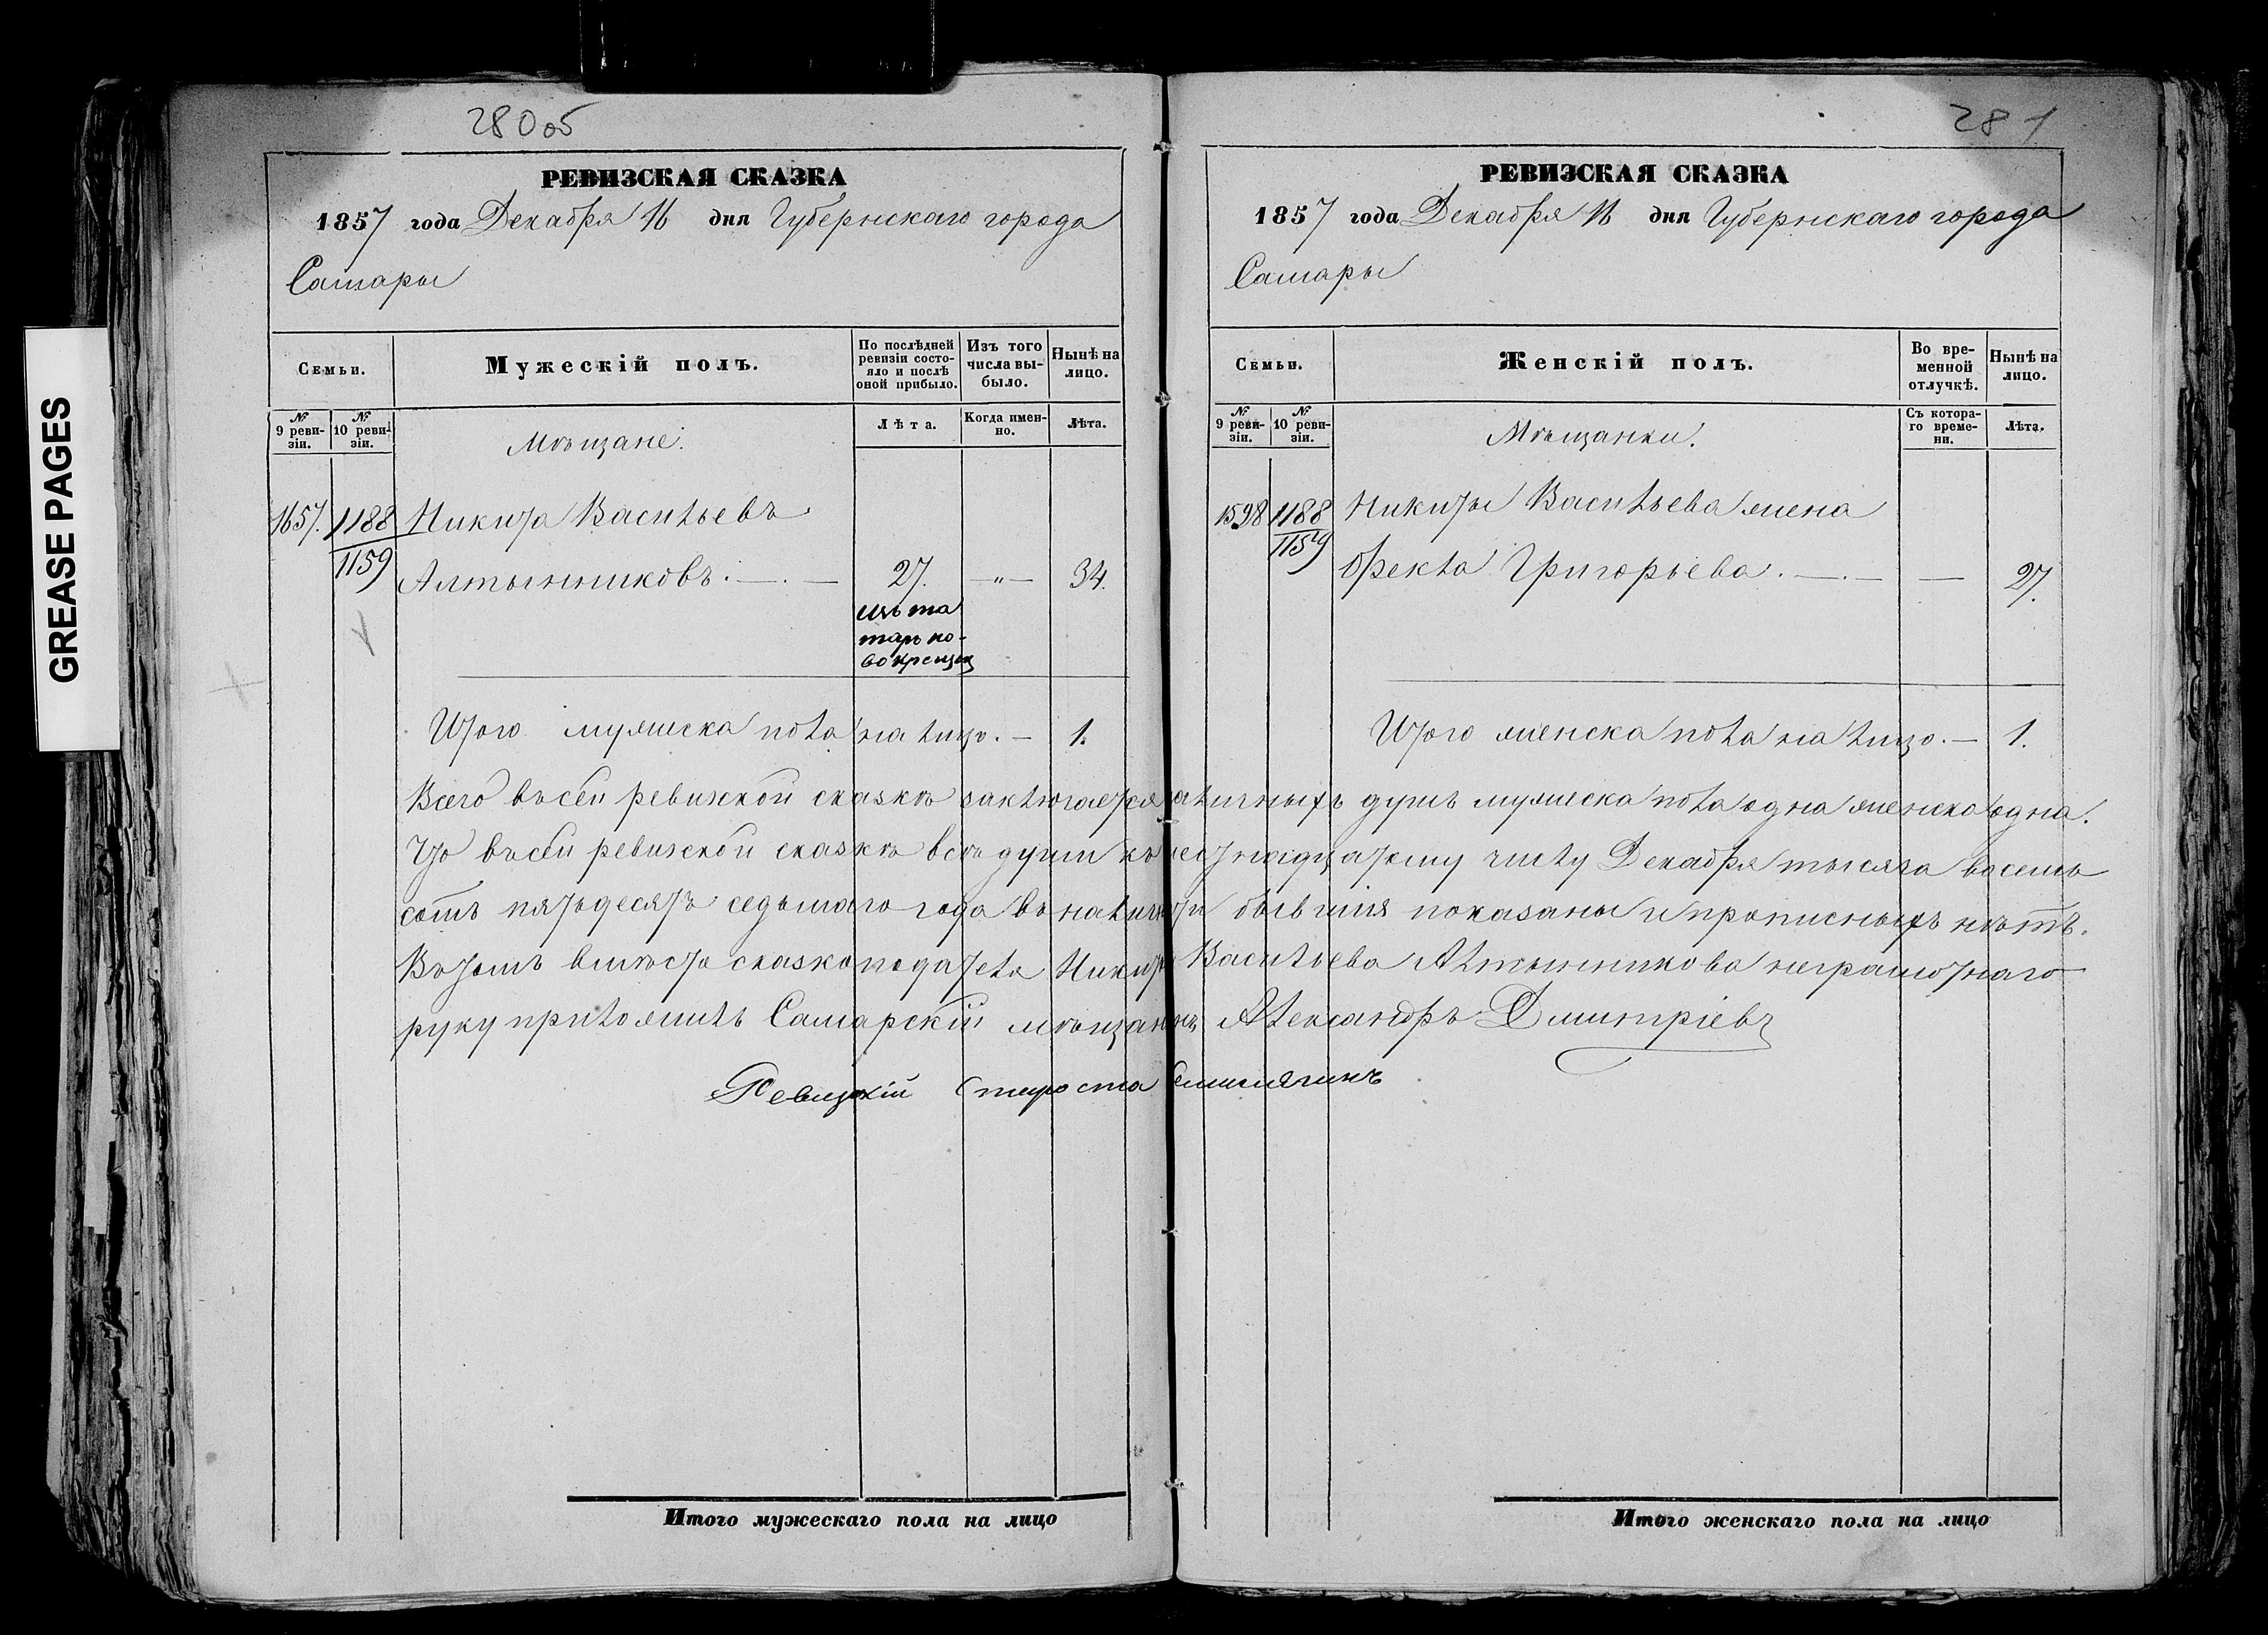 GREASE PAGES
280об
РЕВИЗСКАЯ СКАЗКА
1857 года Декабря 16 дня Губернскаго города
Самары
Семьи.
Мужескій полъ.
По послѣдней ревизіи состояло и послѣ оной прибыло.
Изъ того числа выбыло.
Нынѣ на лицо.
№ 9 ревизіи.
№ 10 ревизіи.
Мѣщане.
Лѣта.
Когда именно.
Лѣта.
1657. 1188 Никита Васильевъ
1159 Алтынниковъ. 27. —„— 34.
изъ та
таръ но-
вокрещен
Итого мужеска пола на лицо. — 1.
281
РЕВИЗСКАЯ СКАЗКА
1857 года Декабря 16 дня Губернскаго города
Самары
Семьи.
Женскій полъ.
Во временной отлучкѣ.
Нынѣ на лицо.
№ 9 ревизіи.
№ 10 ревизіи.
Мѣщанки.
Съ котораго времени.
Лѣта.
1598 1188 Никиты Васильева жена
1159 Фекла Григорьева. — 27.
Итого женска пола на лицо. — 1.
Всего въ сей ревизской сказкѣ заключается наличныхъ душъ мужеска пола одна женска одна.
Что въ сей ревизской сказкѣ всѣ души къ шестнадцатому числу Декабря тысяча восемь
сотъ пятьдесятъ седьмаго года въ наличности бывшия показаны и прописныхъ нѣтъ.
Въ томъ вмѣсто сказкоподателя Никиты Васильева Алтынникова неграмотнаго
руку приложилъ Самарскій мѣщанинъ Александръ Дмитріевъ
Ревизскій Староста
Итого мужескаго пола на лицо
Итого женскаго пола на лицо